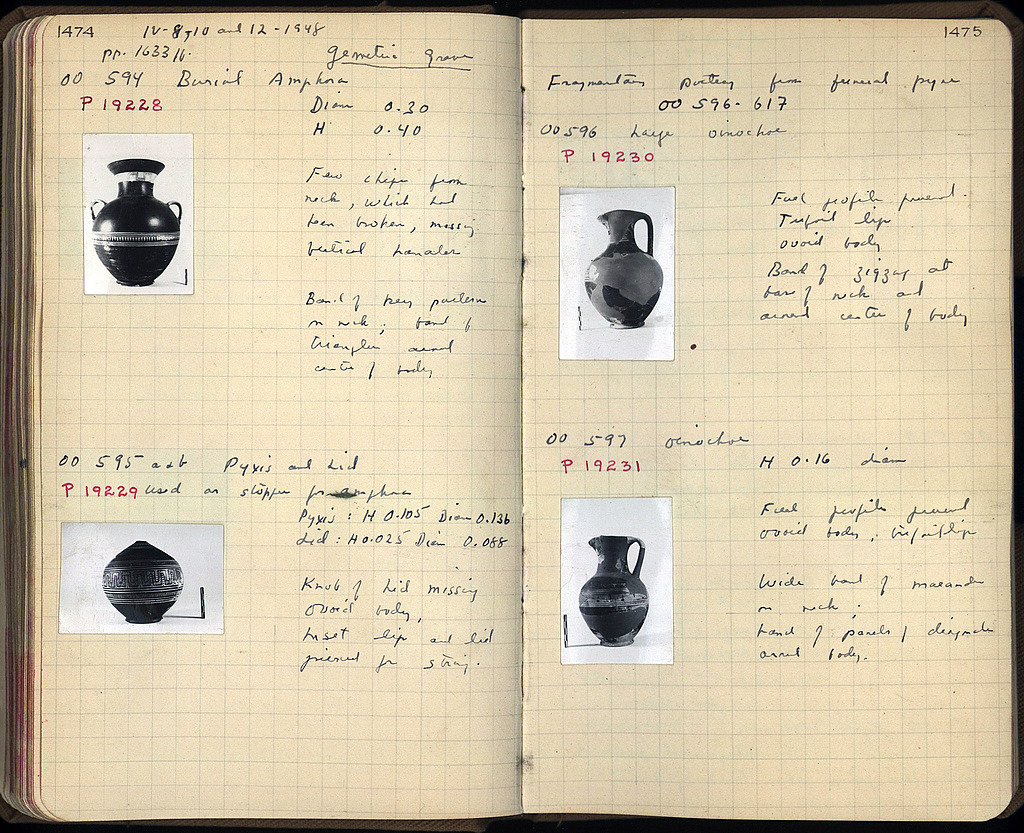 1474
IV-8,10 and 12-1948
pp. 1633 ff.
Geometric Grave
OO 594 Burial Amphora
P 19228
Diam 0.30
H 0.40
Few chips from
neck, which had
been broken, missing
Vertical handles
Band of key pattern
on neck; band of
triangles around
center of body
OO 595 a+b Pyxis and Lid
P 19229 used as stopper for amphora
Pyxis: H 0.105 Diam 0.136
Lid: H 0.025 Diam 0.088
Knob of lid missing
Ovoid body,
Inset lip and lid
pierced for string.
1475
Fragmentary pottery from funeral pyre
OO 596-617
OO 596 Large oinochoe
P 19230
Full profile preserved.
Trefoil lip
ovoid body
Band of zigzag at
base of neck and
around center of body
OO 597 oinochoe
P 19231
H 0.16 diam
Full profile preserved
ovoid body, trefoil lip
Wide band of maeander
on neck;
band of panels of diagonals
around body.